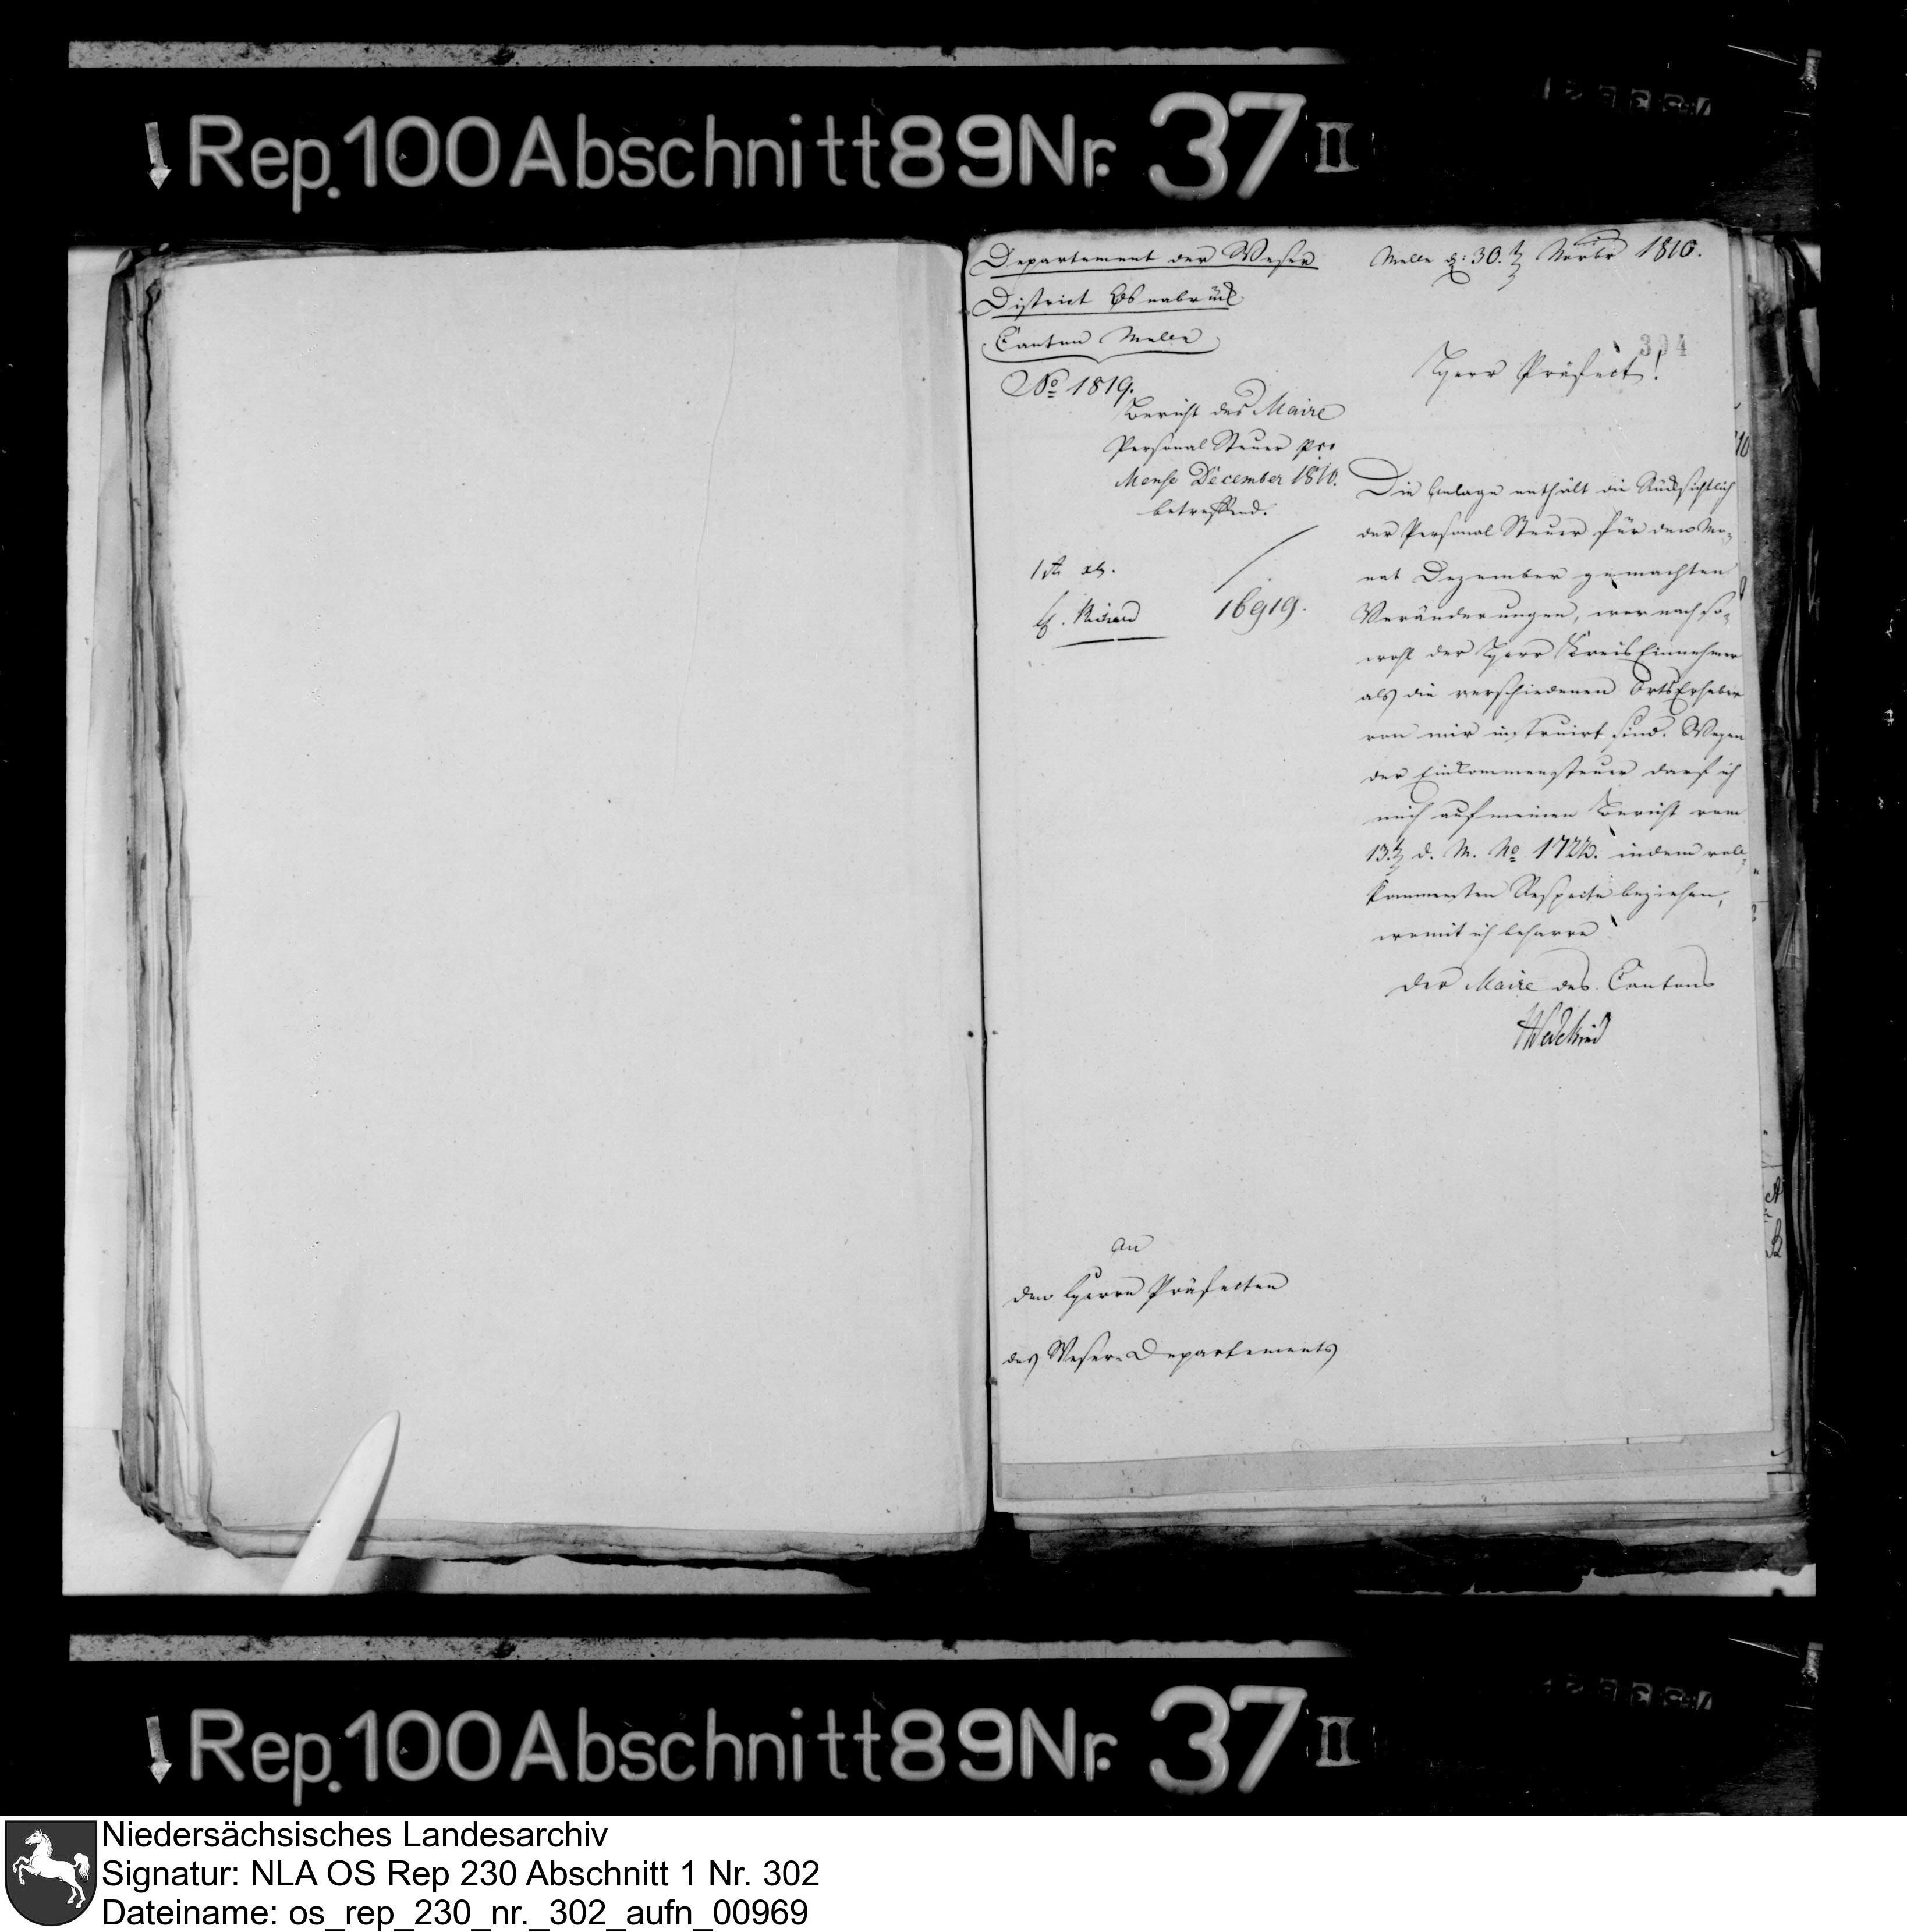 Rep. 100 Abschnitt 89 Nr. 37 II
Departement der Weser
District Osnabrück
Canton Melle
No 1819.
Bericht des Maire
Personal Steuer pro
Mense December 1810.
betreffend.
16919.
Melle d: 30. Novbr 1810.
394
Herr Präfect!
Die Anlage enthält die Rücksichtlich
der Personal Steuer für den Mo-
nat Dezember gemachten
Veränderungen, wornach so-
wohl der Herr Kreis Einnehmer
als die verschiedenen Orts Erheber
von mir instruirt sind. Wegen
der Einkommensteuer darf ich
mich auf meinen Bericht vom
13. d. M. No indem voll-
kommensten Respecte beziehen,
womit ich beharre
der Maire des Cantons
Wedekind
An
den Herrn Präfecten
des Weser-Departements
Rep. 100 Abschnitt 89 Nr. 37 II
Niedersächsisches Landesarchiv
Signatur: NLA OS Rep 230 Abschnitt 1 Nr. 302
Dateiname: os_rep_230_nr._302_aufn_00969